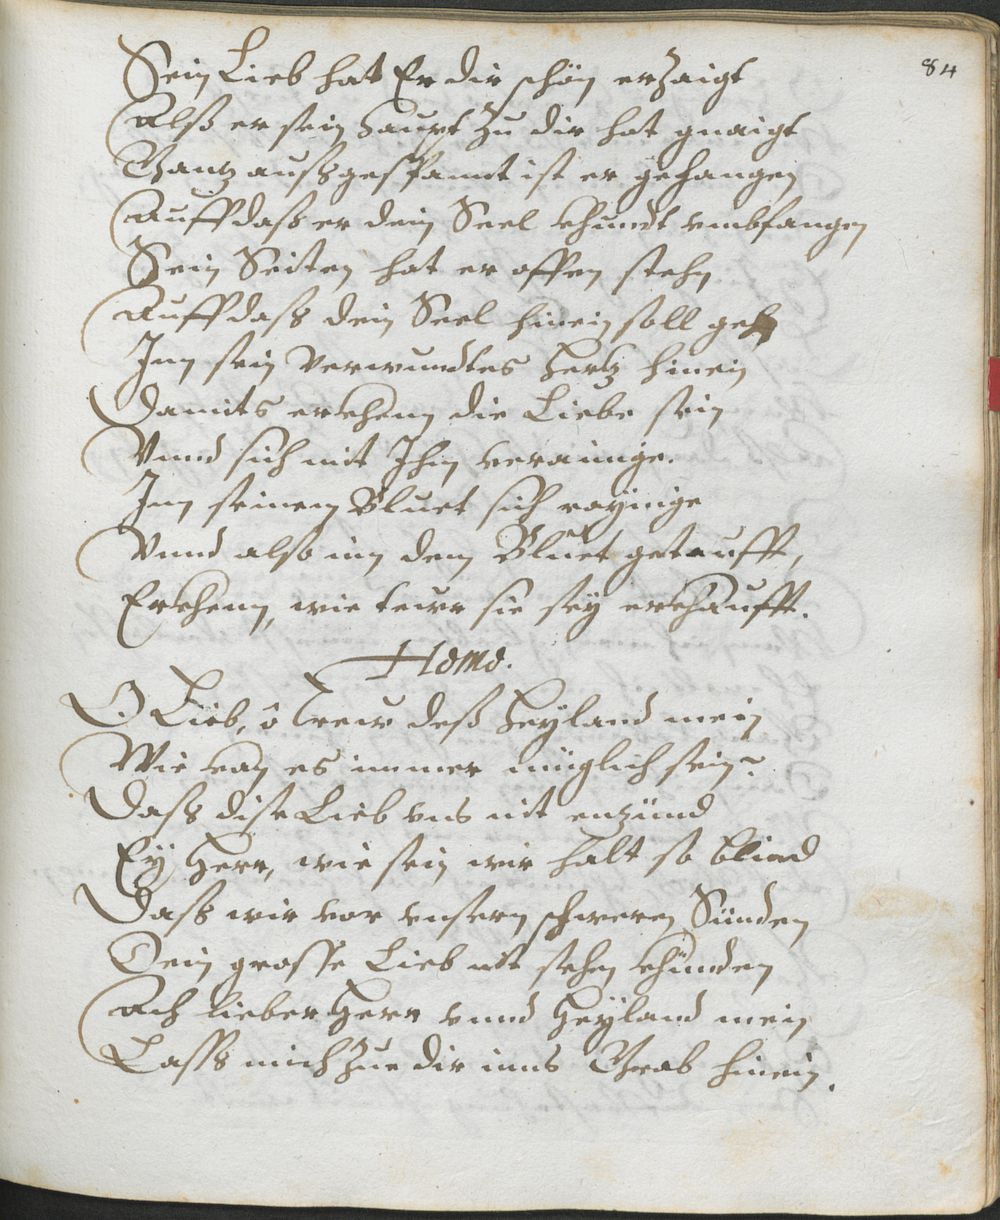 84
Sein Lieb hat Er dir schön erzaigt
Alß er sein Haupt zu dir hat gnaigt
Gantz außgespannt ist er gehangen
Auff daß er dein Seel khundt vmbfangen
Sein Seiten hat er offen stehn
Auff daß dein Seel hinein soll gehn
Inn sein verwundtes Hertz hinein
Damits erkhenn die Liebe sein
Vnnd sich mit Ihm verainige.
Inn seinem Bluet sich raÿnige
Vnnd also inn dem Bluet getaufft,
Erkhenn, wie tewr sie seÿ erkhaufft.
Homo.
O Lieb, ô trew deß Heÿland mein
Wie kan es immer müglich sein?
Daß dise Lieb vns nit enzünd
Eÿ Herr, wie sein wir halt so blind
Daß wir vor vnsern schweren Sünden
Dein grosse Lieb nit sehen khünden
Ach lieber Herr vnnd Heÿland mein
Lasß mich zue dir inns Grab hinein.